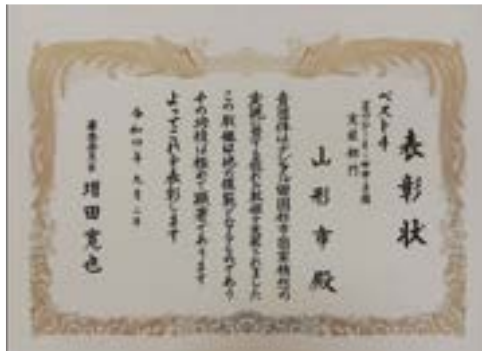 表彰状
ベスト4
山形市殿
貴団体はデジタル田園都市国家構想の
実現に資する優れた取組を実施されました
この取組は他の模範となるものであり
その功績は極めて顕著であります
よってこれを表彰します
令和四年九月二日
審査委員長 増田寛也